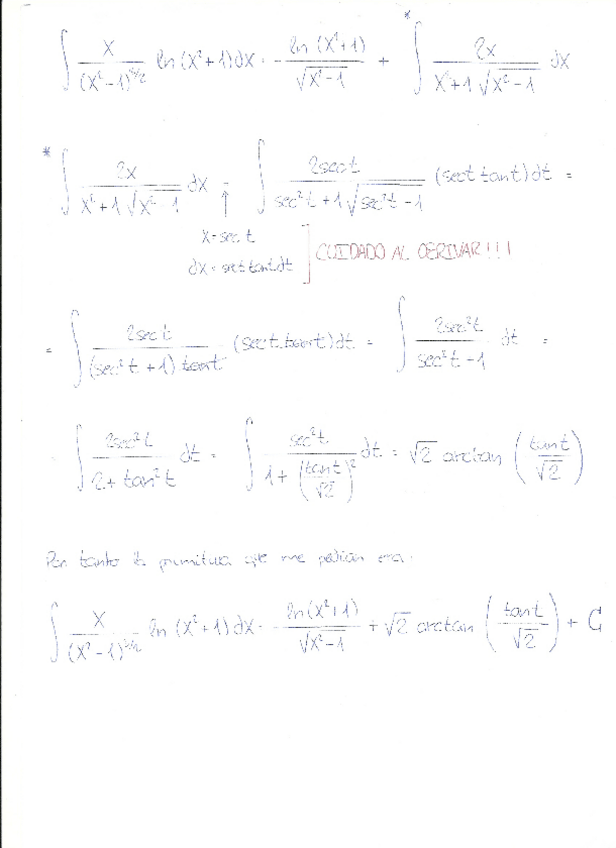 ∫ x/(x²-1)^3/2 ln(x²+1)dx = - ln(x²+1)/√(x²-1) + * ∫ 2x/(x²+1 √(x²-1)) dx
* ∫ 2x/(x²+1 √(x²-1)) dx = ∫ 2sec t/(sec²t+1 √(sec²t-1)) (sect tant)dt =
↑
x=sec t
dx=sect tant dt ] CUIDADO AL DERIVAR!!!
= ∫ 2sec t/((sec²t+1) tant) (sect.tant)dt = ∫ 2sec²t/(sec²t-1) dt =
∫ 2sec²t/(2+tan²t) dt = ∫ sec²t/(1+(tant/√2)²) dt = √2 arctan (tant/√2)
Por tanto la primitiva que me pedían era:
∫ x/(x²-1)^3/2 ln(x²+1)dx = - ln(x²+1)/√(x²-1) + √2 arctan (tant/√2) + C